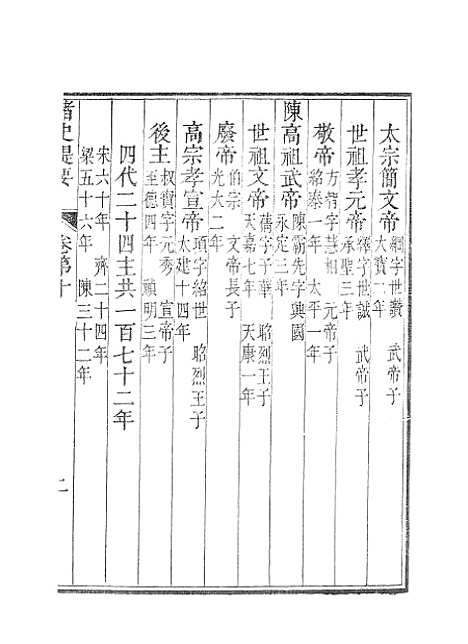 太宗簡文帝 綱字世讚 武帝子
大寶二年
世祖孝元帝 繹字世誠 武帝子
承聖三年
敬帝 方智字慧相 元帝子
紹泰一年 太平一年
陳高祖武帝 陳霸先字興國
永定三年
世祖文帝 蒨字子華 昭烈王子
天嘉七年 天康一年
廢帝 伯宗 文帝長子
光大二年
高宗孝宣帝 頊字紹世 昭烈王子
太建十四年
後主 叔寶字元秀 宣帝子
至德四年 禎明三年
四代二十四主共一百七十二年
宋六十年 齊二十四年
梁五十六年 陳三十二年
諸史提要 卷第十 二